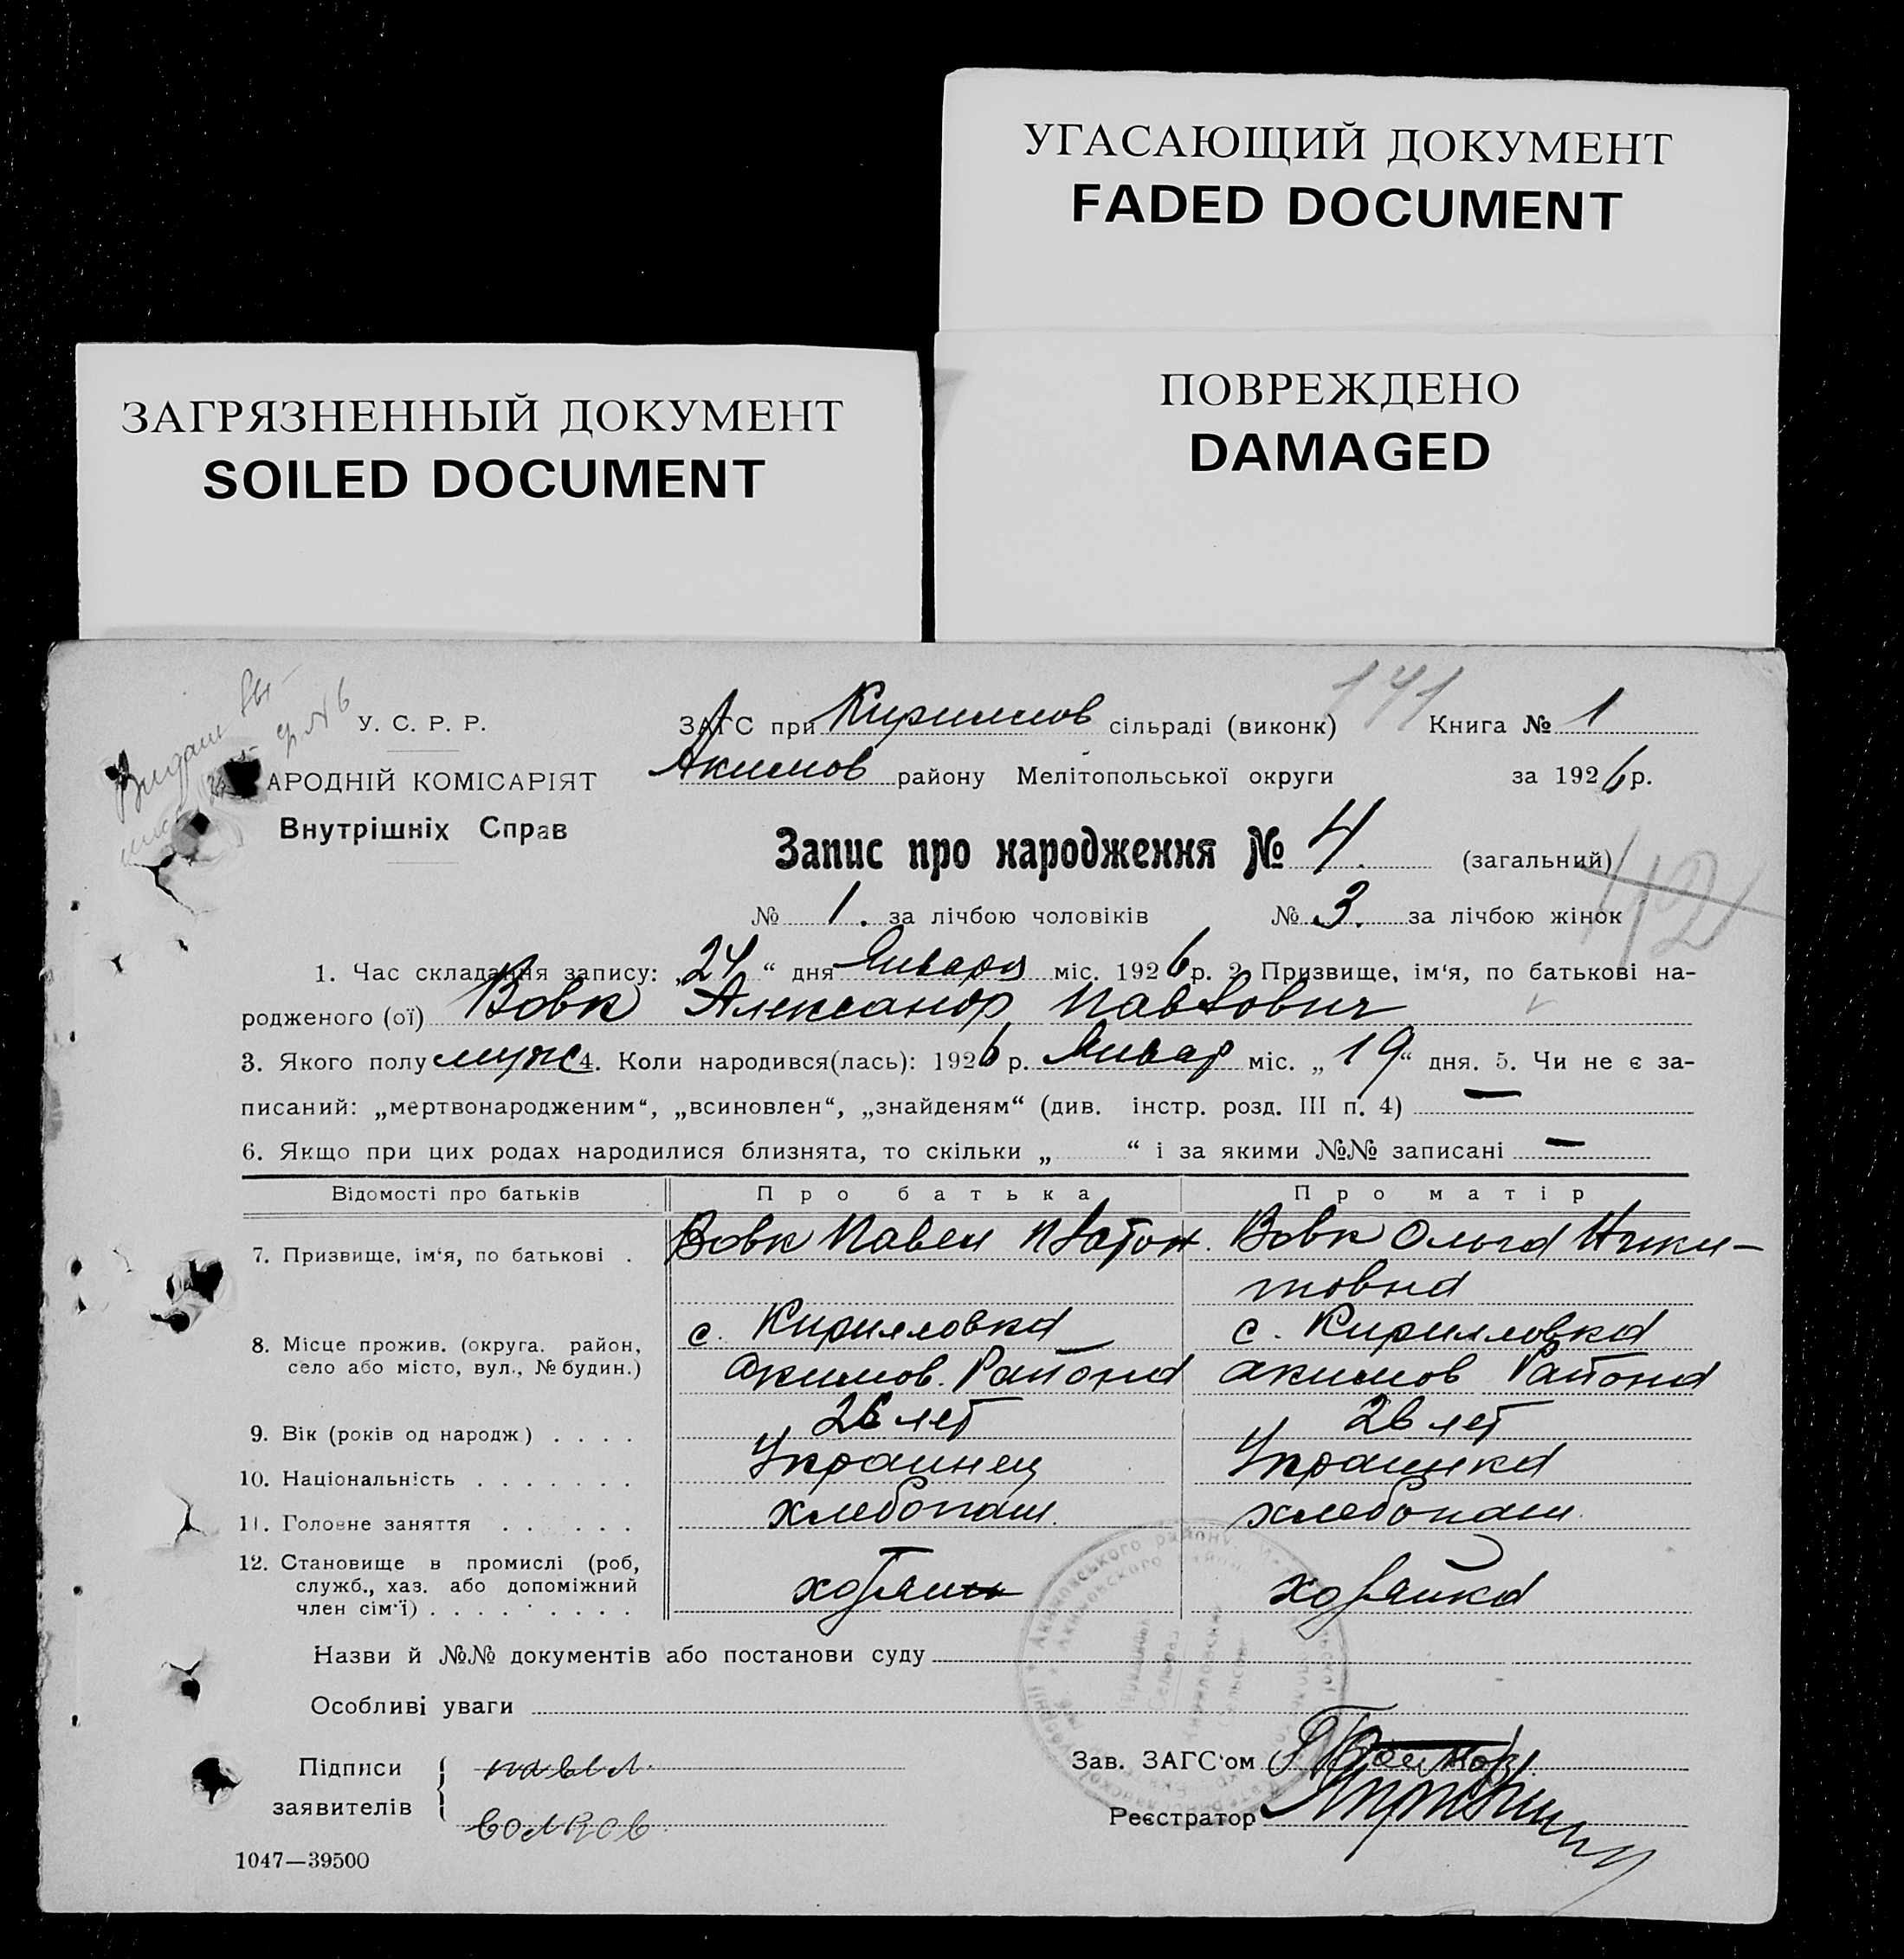 УГАСАЮЩИЙ ДОКУМЕНТ
FADED DOCUMENT
ЗАГРЯЗНЕННЫЙ ДОКУМЕНТ
SOILED DOCUMENT
ПОВРЕЖДЕНО
DAMAGED
У. С. Р. Р.
АРОДНІЙ КОМІСАРІЯТ
Внутрішніх Справ
ЗАГС при Кириллов сільраді (виконк) 141 Книга № 1
Акимов району Мелітопольської округи за 1926 р.
Запис про народження № 4. (загальний)
№ 1. за лічбою чоловіків № 3. за лічбою жінок
142
1. Час складання запису: „24“ дня Января міс. 1926 р. 2. Призвище, ім'я, по батькові на-
родженого (ої) Вовк Александр Павлович
3. Якого полу муж 4. Коли народився(лась): 1926 р. Январ міс. „19“ дня. 5. Чи не є за-
писаний: „мертвонародженим“, „всиновлен“, „знайденям“ (див. інстр. розд. III п. 4) —
6. Якщо при цих родах народилися близнята, то скільки „ “ і за якими №№ записані —
Відомості про батьків Про батька Про матір
7. Призвище, ім'я, по батькові . Вовк Павел Платон. Вовк Ольга Ники-
товна
8. Місце прожив. (округа. район, с. Кирилловка с. Кирилловка
село або місто, вул., № будин.) Акимов. Района Акимов Района
9. Вік (років од народж) . . . . 26 лет 26 лет
10. Національність . . . . . . . Украинец Украинка
11. Головне заняття . . . . . . хлебопаш. хлебопаш.
12. Становище в промислі (роб,
служб., хаз. або допоміжний хозяин хозяйка
член сім'ї) . . . . . . . . .
Назви й №№ документів або постанови суду
Особливі уваги
Підписи павел. Зав. ЗАГС'ом
заявителів волков. Реєстратор
1047—39500